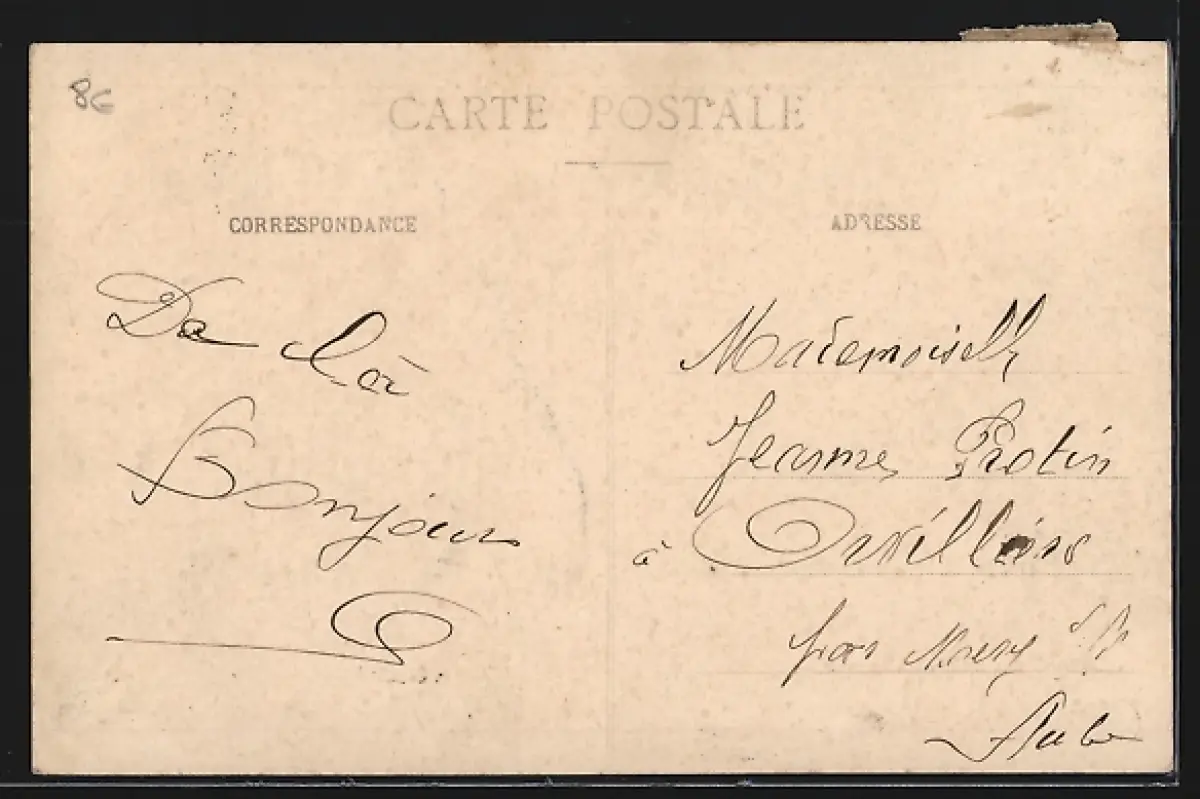 8€
CARTE POSTALE
CORRESPONDANCE
ADRESSE
Bonjour
Mademoiselle
Jeanne Protin
à Orvilliers
par Mery S/S
Aube